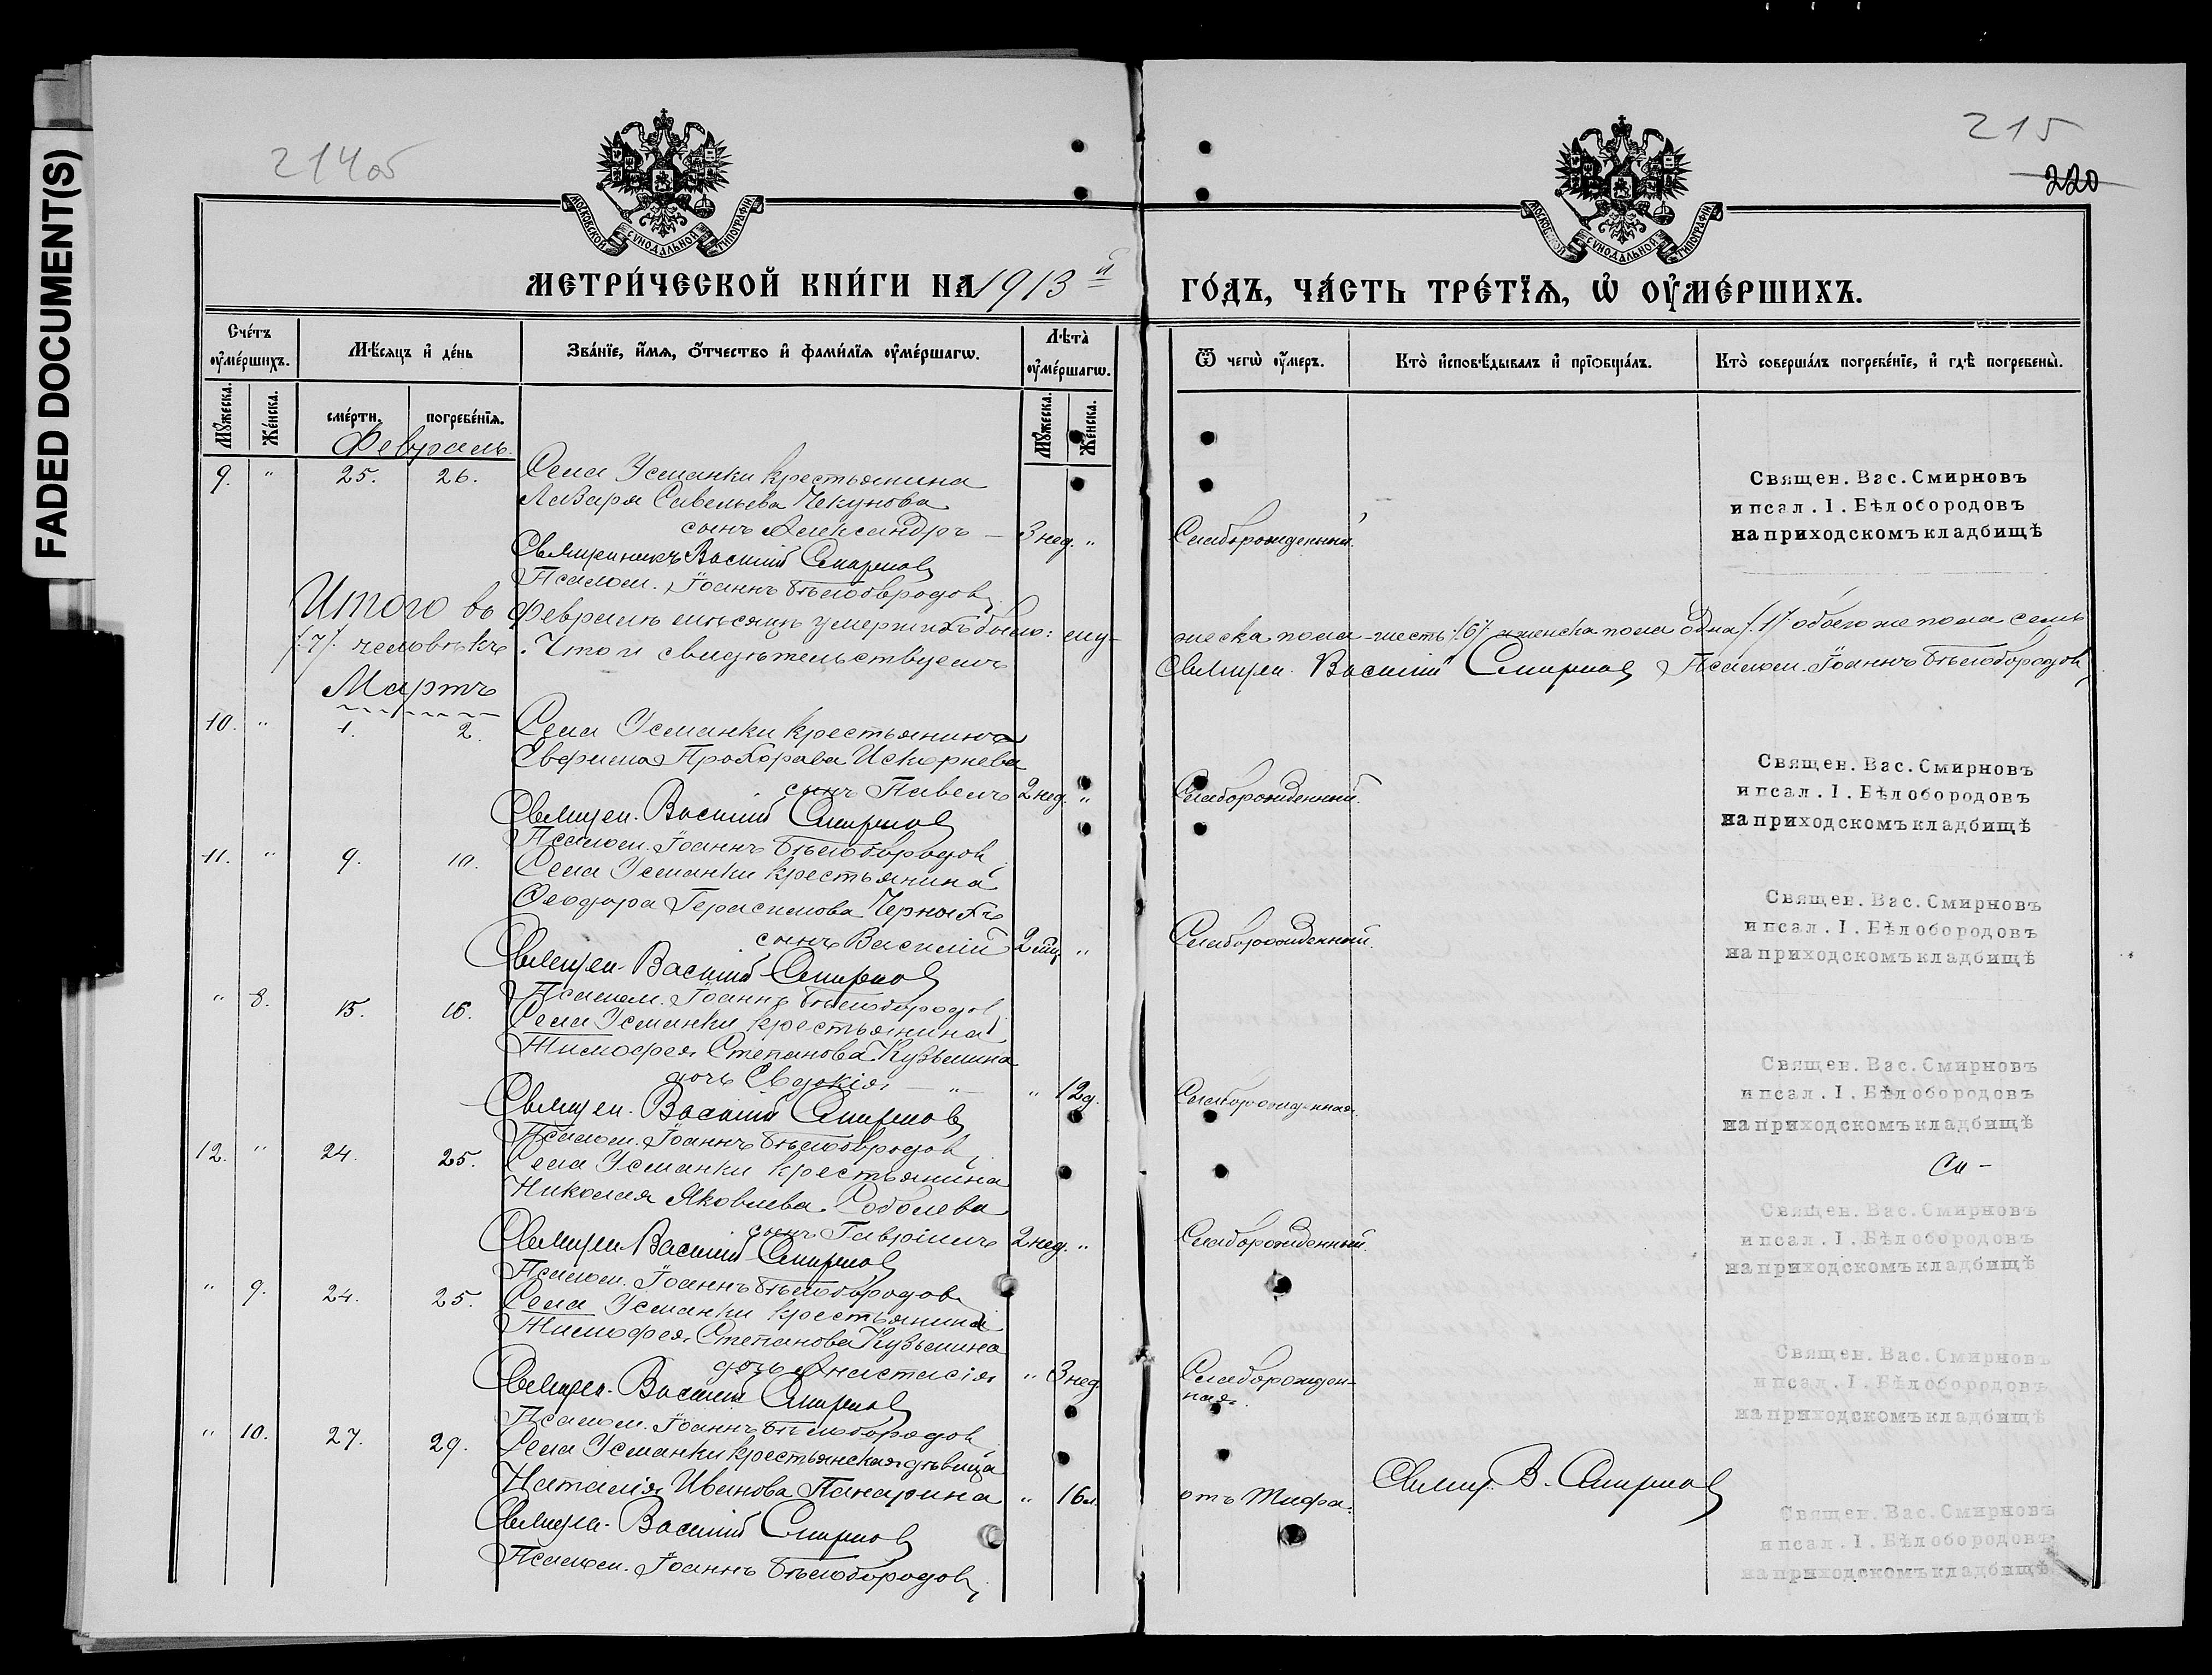 FADED DOCUMENT(S)
214об
215
220
МОСКОВСКОЙ СѴНОДАЛЬНОЙ ТИПОГРАФІИ
МОСКОВСКОЙ СѴНОДАЛЬНОЙ ТИПОГРАФІИ
МЕТРИ́ЧЕСКОЙ КНИ́ГИ НА 1913й ГО́ДЪ, ЧА́СТЬ ТРЕ́ТЇѦ, Ѡ҆ ОУ҆МЕ́РШИХЪ.
Сче́тъ оу҆ме́ршихъ.
Мꙋ́жеска.
Же́нска.
Мѣ́сяцъ и҆ де́нь
сме́рти.
погребе́нїѧ.
Зва́нїе, и҆́мѧ, ѻ҆́тчество и҆ фами́лїѧ оу҆ме́ршагѡ.
Лѣта̀ оу҆ме́ршагѡ.
Мꙋ́жеска.
Же́нска.
Ѿ чегѡ̀ оу҆́меръ.
Кто̀ и҆сповѣ́дывалъ и҆ прїѻбща́лъ.
Кто̀ соверша́лъ погребе́нїе, и҆ гдѣ̀ погребены̀.
Февраль.
9. " 25. 26. Села Усманки крестьянина
Лазаря Савельева Чекунова
сынъ Александръ – 3 нед. " Слаборожденный.
Священникъ Василій Смирновъ
Псалом. Іоаннъ Бѣлобородовъ
Свящев. Вас. Смирновъ
и псал. І. Бѣлобородовъ
на приходскомъ кладбищѣ
Итого въ Февралѣ мѣсяцѣ умершихъ было: му-жеска пола – шесть /6/ и женска пола одна /1/ обоего же пола семь
/7/ человѣкъ. Что и свидѣтельствуемъ Священ. Василій Смирновъ Псалом. Іоаннъ Бѣлобородовъ
Мартъ
10. " 1. 2. Села Усманки крестьянина
Евфима Прохорова Искорнева
сынъ Павелъ 2 нед. " Слаборожденный.
Священ. Василій Смирновъ
Псалом. Іоаннъ Бѣлобородовъ
Свящев. Вас. Смирновъ
и псал. І. Бѣлобородовъ
на приходскомъ кладбищѣ
11. " 9. 10. Села Усманки крестьянина
Ѳеодора Герасимова Черныхъ
сынъ Василій 2 мѣц " Слаборожденный.
Священ. Василій Смирновъ
Псалом. Іоаннъ Бѣлобородовъ
Свящев. Вас. Смирновъ
и псал. І. Бѣлобородовъ
на приходскомъ кладбищѣ
" 8. 15. 16. Села Усманки крестьянина
Тимофея Степанова Кузьмина
дочь Евдокія – " " 12 д. Слаборожденная.
Священ. Василій Смирновъ
Псалом. Іоаннъ Бѣлобородовъ
Свящев. Вас. Смирновъ
и псал. І. Бѣлобородовъ
на приходскомъ кладбищѣ
12. " 24. 25. Села Усманки крестьянина
Николая Яковлева Соболева
сынъ Гавріилъ 2 нед. " Слаборожденный.
Священ. Василій Смирновъ
Псалом. Іоаннъ Бѣлобородовъ
Свящев. Вас. Смирновъ
и псал. І. Бѣлобородовъ
на приходскомъ кладбищѣ
" 9. 24. 25. Села Усманки крестьянина
Тимофея Степанова Кузьмина
дочь Анастасія " 3 нед. Слаборожден-
ная.
Священ. Василій Смирновъ
Псалом. Іоаннъ Бѣлобородовъ
Свящев. Вас. Смирновъ
и псал. І. Бѣлобородовъ
на приходскомъ кладбищѣ
" 10. 27. 29. Села Усманки крестьянская дѣвица
Наталія Иванова Панарина " 16 л. отъ Тифа. Священ. В. Смирновъ
Священ. Василій Смирновъ
Псалом. Іоаннъ Бѣлобородовъ
Свящев. Вас. Смирновъ
и псал. І. Бѣлобородовъ
на приходскомъ кладбищѣ